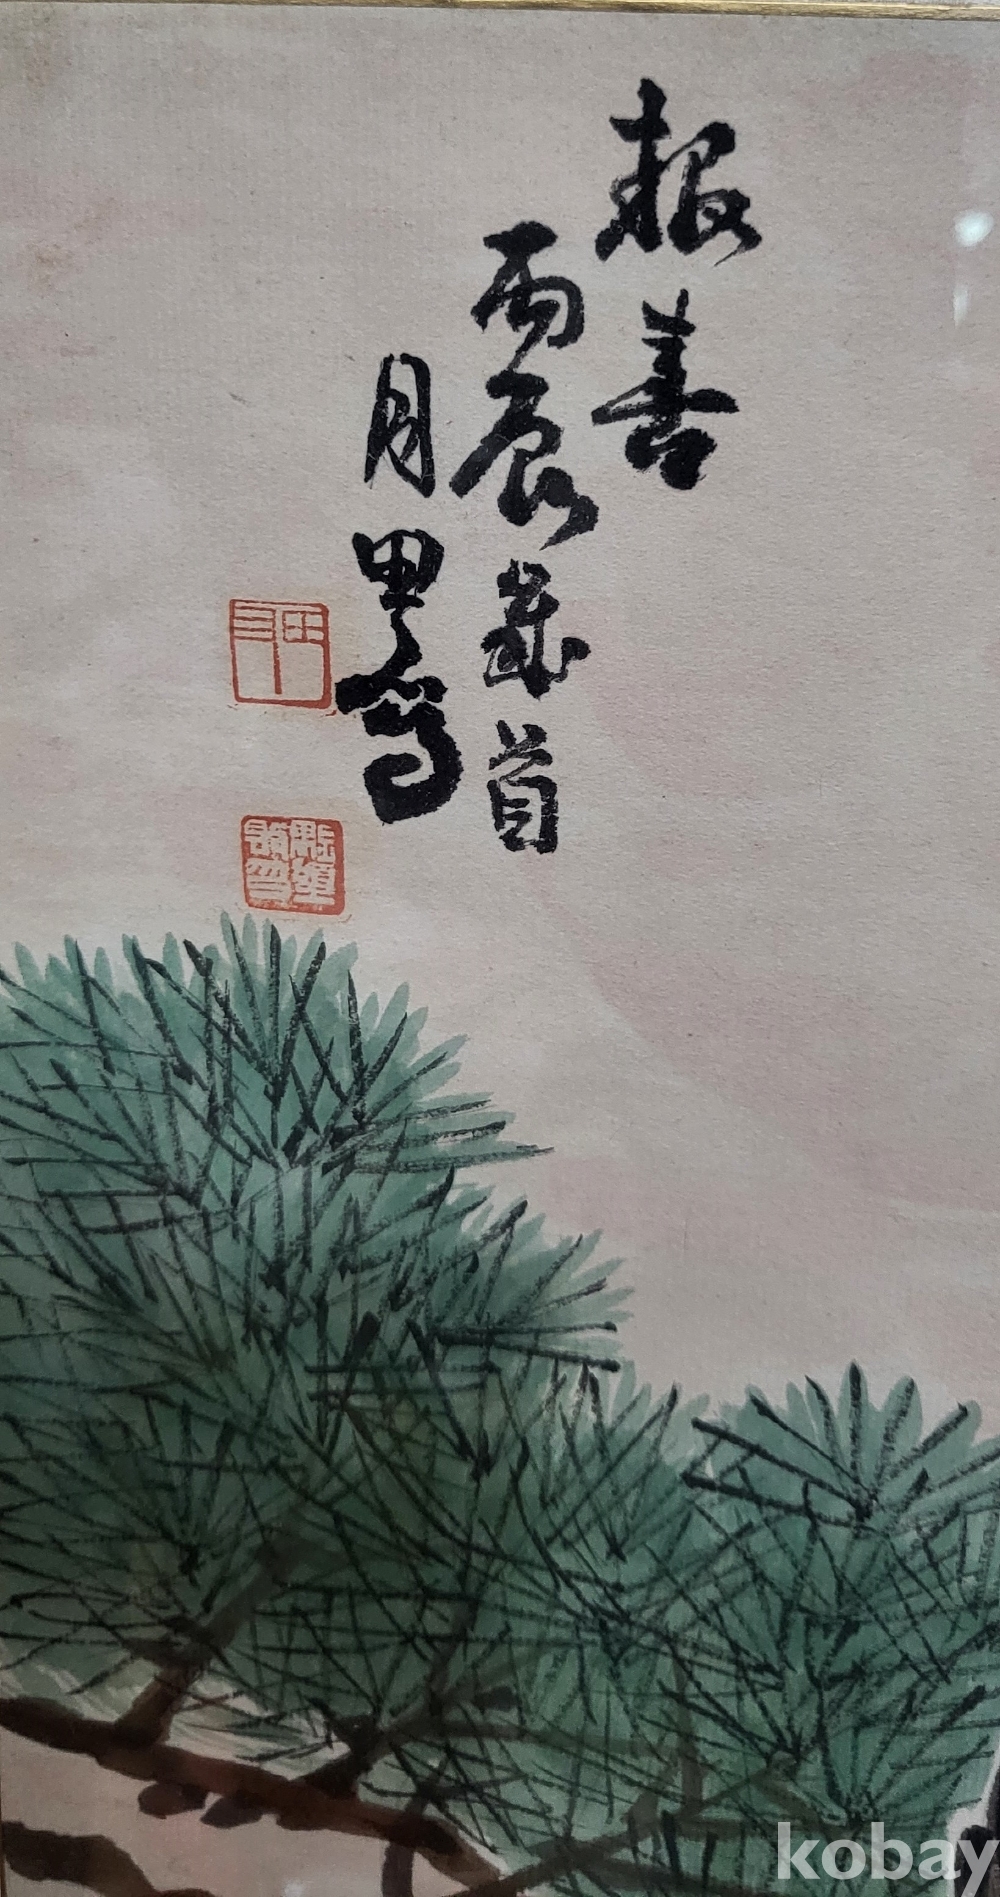 報善
丙辰歲首
月里寫
kobay